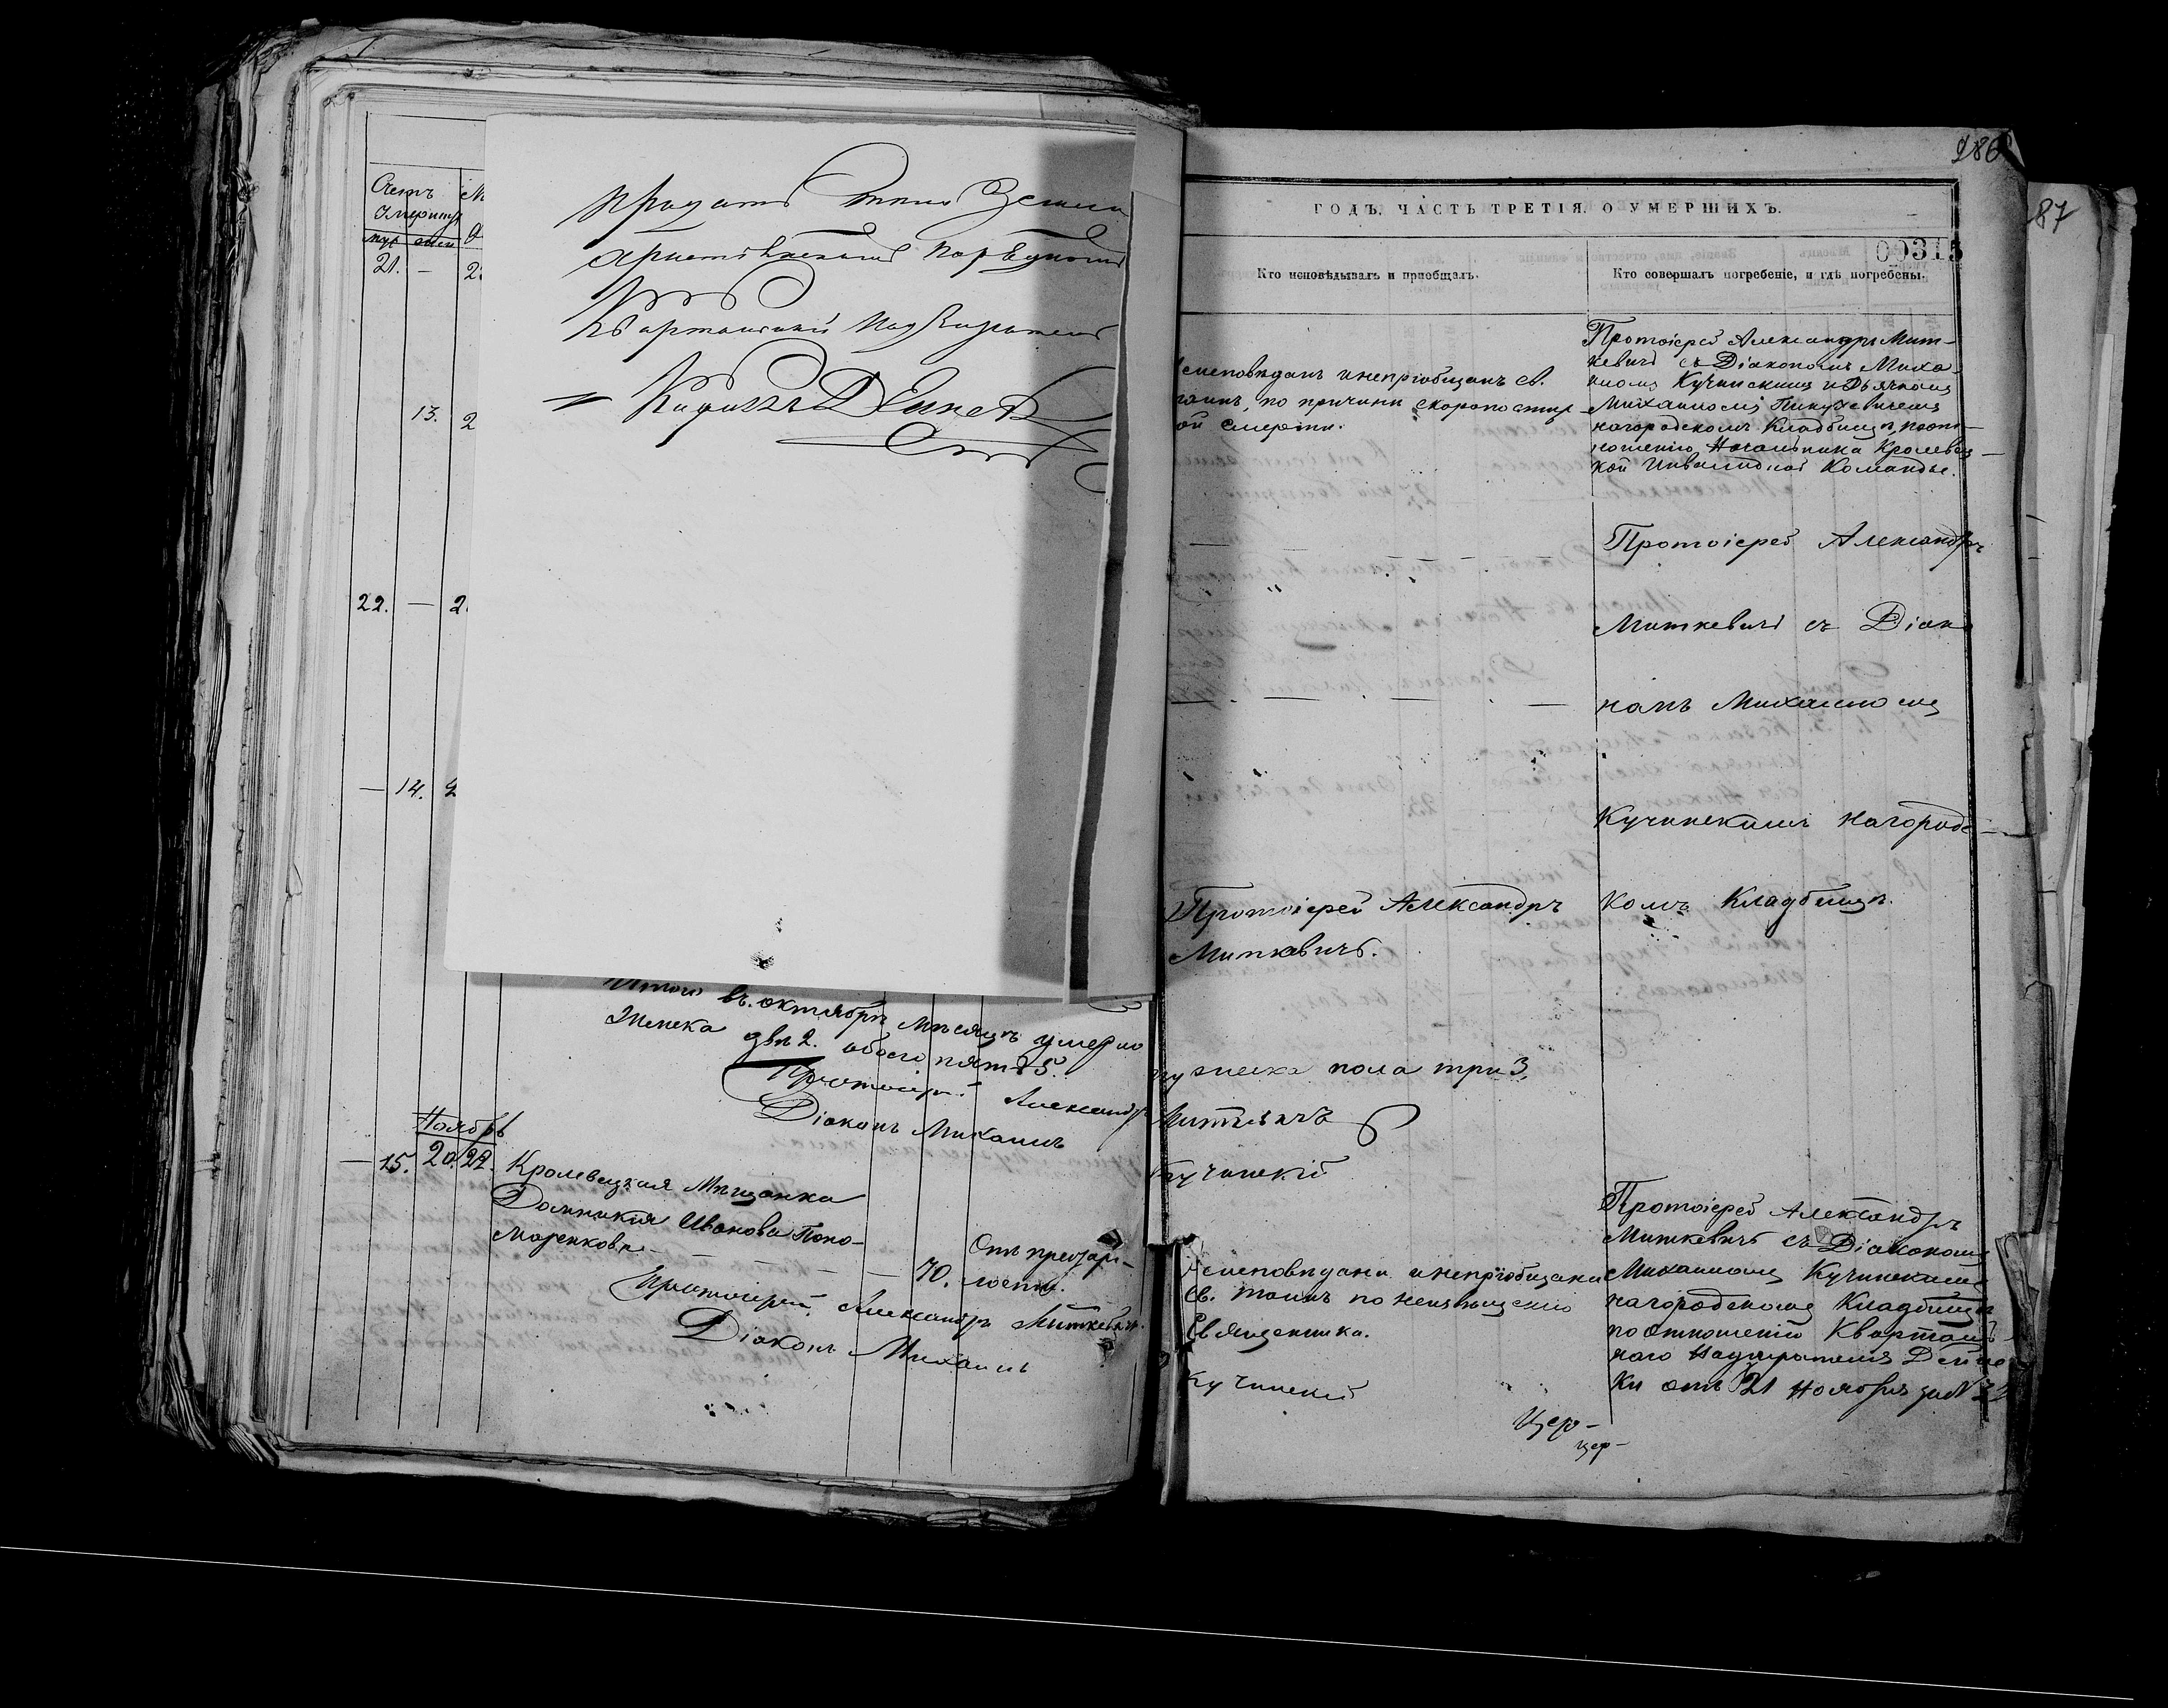 Счетъ
умершихъ
муж жен
21. —
13. 2
22. — 2
— 14.
придать тело земли
Квартальный Надзиратель
Итого въ октябрѣ мѣсяцѣ умерло
женска двѣ 2. обоего пять 5.
Протоіерей Александръ
Діаконъ Михаилъ
Ноябрь
— 15. 20. 22. Кролевецкая Мѣщанка
Домникія Иванова Поно-
маренкова — — — 70. Отъ престарѣ-
лости.
Протоіерей Александръ Миткевичъ.
Діаконъ Михаилъ
186
87
ГОДЪ. ЧАСТЬ ТРЕТІЯ. О УМЕРШИХЪ.
00315
Кто исповѣдывалъ и пріобщалъ.
Кто совершалъ погребеніе, и гдѣ погребены.
исповѣданъ инепріобщанъ св.
таинъ, по причинѣ скоропостиж-
ой смерти.
Протоіерей Александръ Мит-
кевичъ съ Діакономъ Миха-
иломъ Кучинскимъ и Дьячкомъ
Михаиломъ
нагородскомъ Кладбищѣ, поот-
ношенію Начальника Кролевец-
кой Инвалидной Команды.
Протоіерей Александръ
Миткевичъ съ Діако
номъ Михаиломъ
Кучинскимъ нагородс-
комъ Кладбищѣ.
Протоіерей Александръ
Миткевичъ.
мужеска пола три 3,
Миткевичъ
Кучинскій
исповѣдана инепріобщана
св. таинъ по неизвѣщенію
Священника.
Кучинскій
Протоіерей Александръ
Миткевичъ съ Діакономъ
Михаиломъ Кучинскимъ
нагородскомъ Кладбищѣ
поотношенію Квартальн-
наго Надзирателя Дейне
ки отъ 21 Ноября за №
Цер-
цер-